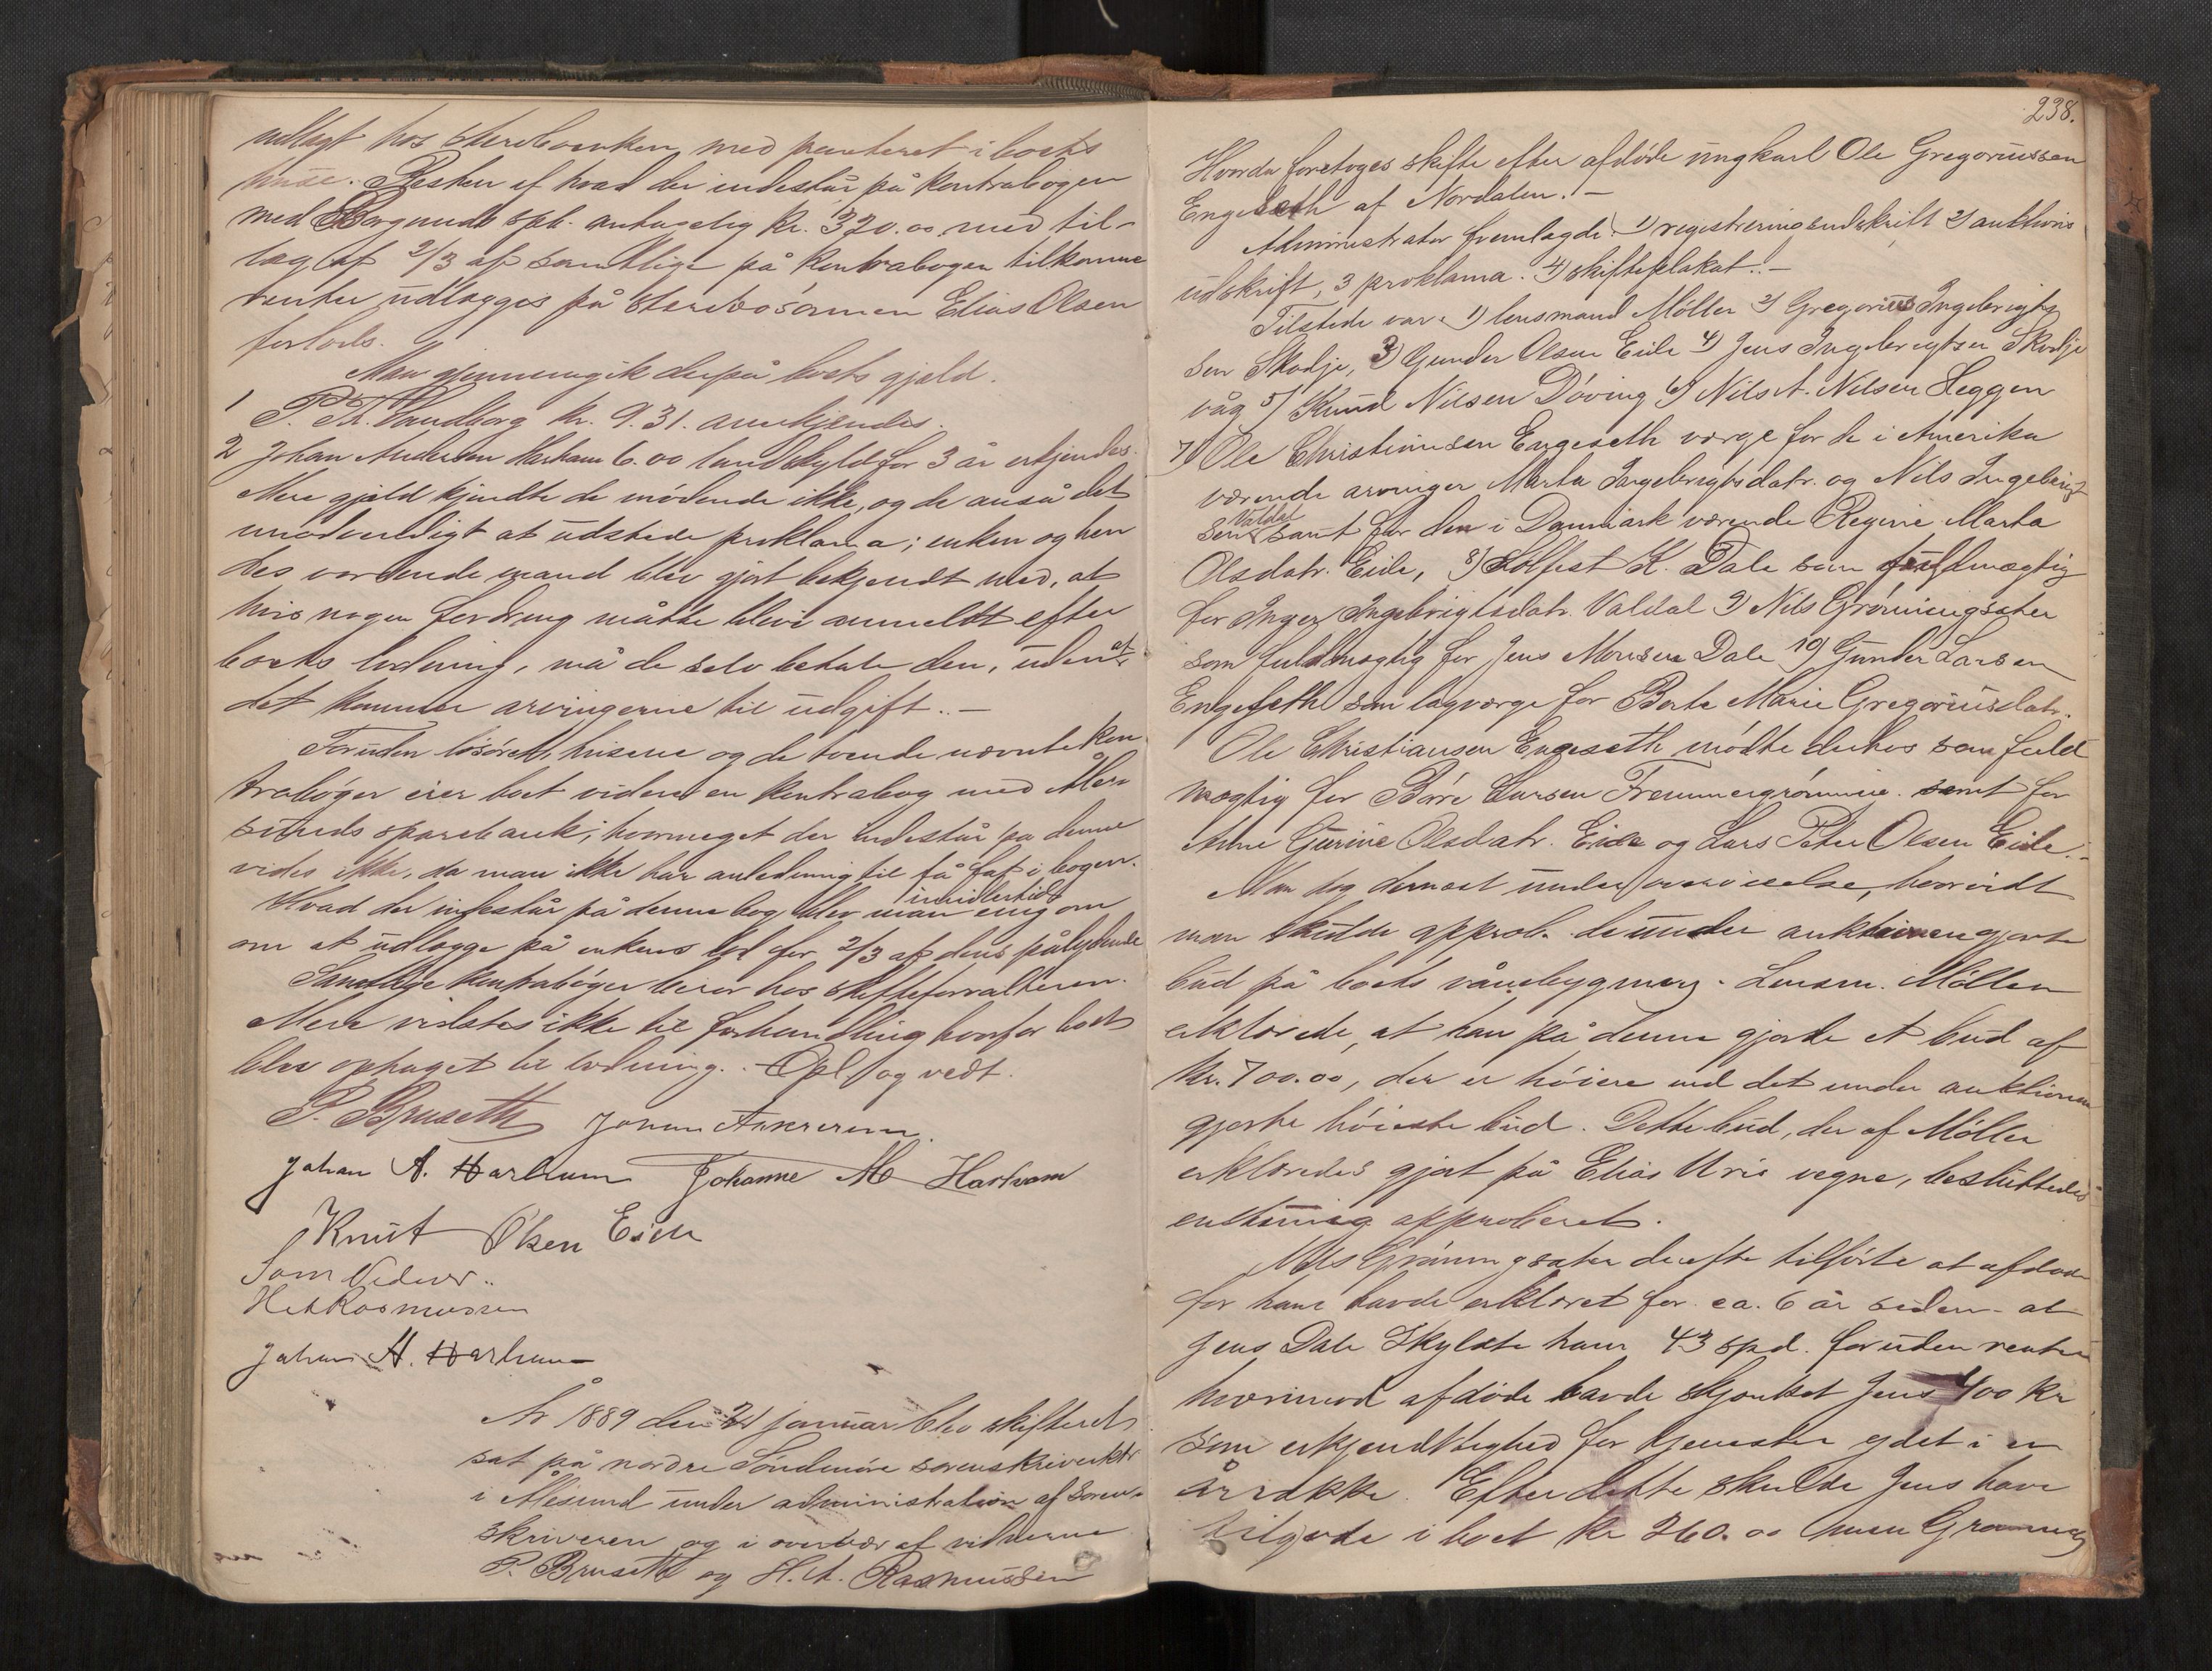 udlagt hos sterbøenken med panteret i boets
huse. Resten af hvad der indestår på kontrabogen
med Borgunds spb. antagelig kr. 320.00 med til-
læg af 2/3 af samtlige på kontrabogen tilkomne
renter udlægges på sterbosønnen Elias Olsen
forlods.
Man gjennemgik derpå boets gjæld.
1 P. Th. Sandborg kr. 9.31. anerkjendes.
2 Johan Andersen Harham 6.00 landskyld for 3 år erkjendes.
Mere gjæld kjendte de mødende ikke, og de anså det
unødvendigt at udstede proklama; enken og hen
des vordende mand blev gjort bekjendt med, at
hvis nogen fordring måtte blive anmeldt efter
boets lodning, må de selv betale den, uden at
det kommer arvingerne til udgift. -
Foruden løsøret, husene og de tvende nævnte kon
trabøger eier boet videre en kontrabog med Åle-
sunds sparebank; hvormeget der indestår på denne
vides ikke, da man ikke har anledning til få fat i bogen.
Hvad der indestår på denne bog blev man imidlertid enig om
om at udlægge på enkens lod for 2/3 af dens pålydende
Samtlige kontrabøger beror hos skifteforvalteren.
Mere vidstes ikke til forhandling hvorfor boet
blev optaget til lodning. - Opl. og vedt.
P. Bruseth Johan
Johan A. Harham Johanne M Harham
Knut Olsen Eide
Som Vidner..
H A Rasmussen
Johan A. Harham
År 1889 den 24 januar blev skifteret
sat på nordre Søndmøre sorenskriverktr
i Ålesund under administration af soren-
skriveren og i overvær af vidnerne
P. Bruseth og H. A. Rasmussen
238.
Hvorda foretoges skifte efter afdøde ungkarl Ole Gregoriussen
Engeseth af Nordalen. -
Administrator fremlagde: 1) registreringsudskrift 2) auktions
udskrift, 3 proklama. 4) skifteplakat. -
Tilstede var: 1) lensmand Møller 2) Gregorius Ingebrigts
sen Skodje, 3) Gunder Olsen Eide 4) Jens Ingebrigtsen Skodje
våg 5) Knud Nilsen Døving 6) Nils A. Nilsen Heggen
7) Ole Christiansen Engeseth værge for de i Amerika
værende arvinger Marta Ingebrigtsdatr. og Nils Ingebrigt
sen Valdal samt for den i Danmark værende Regine Marta
Olsdatr. Eide, 8) Solfest K. Dale som fuldmægtig
for Inger Ingebrigtsdatr. Valdal 9) Nils Grønningsæter
som fuldmægtig for Jens Monsen Dale 10) Gunder Larsen
Engeseth som lagværge for Berte Marie Gregoriusdatr.
Ole Christiansen Engeseth mødte derhos som fuld
mægtig for Børre Larsen Fremmergrønning samt for
Anne Gurine Olsdatr. Eide og Lars Peter Olsen Eide.
Man tog dernæst under overveielse, hvorvidt
man skulde approb. de under auktionen gjorte
bud på boets våningsbygning. Lensm. Møller
erklærede, at han på denne gjorde et bud af
kr. 700.00, der er høiere end det under auktionen
gjorte høieste bud. Dette bud, der af Møller
erklæredes gjort på Elias Uris vegne, besluttedes
enstemmig approberet.
Nils Grønningsæter derefter tilførte at afdøde
for ham havde erklæret for ca. 6 år siden - at
Jens Dale skyldte ham 43 spd. foruden renter
hvorimod afdøde havde skjænket Jens 400 kr
som erkjendtlighed for tjenester ydet i en
årrække. Efter dette skulde Jens have
tilgode i boet kr 260.00 men Grønning